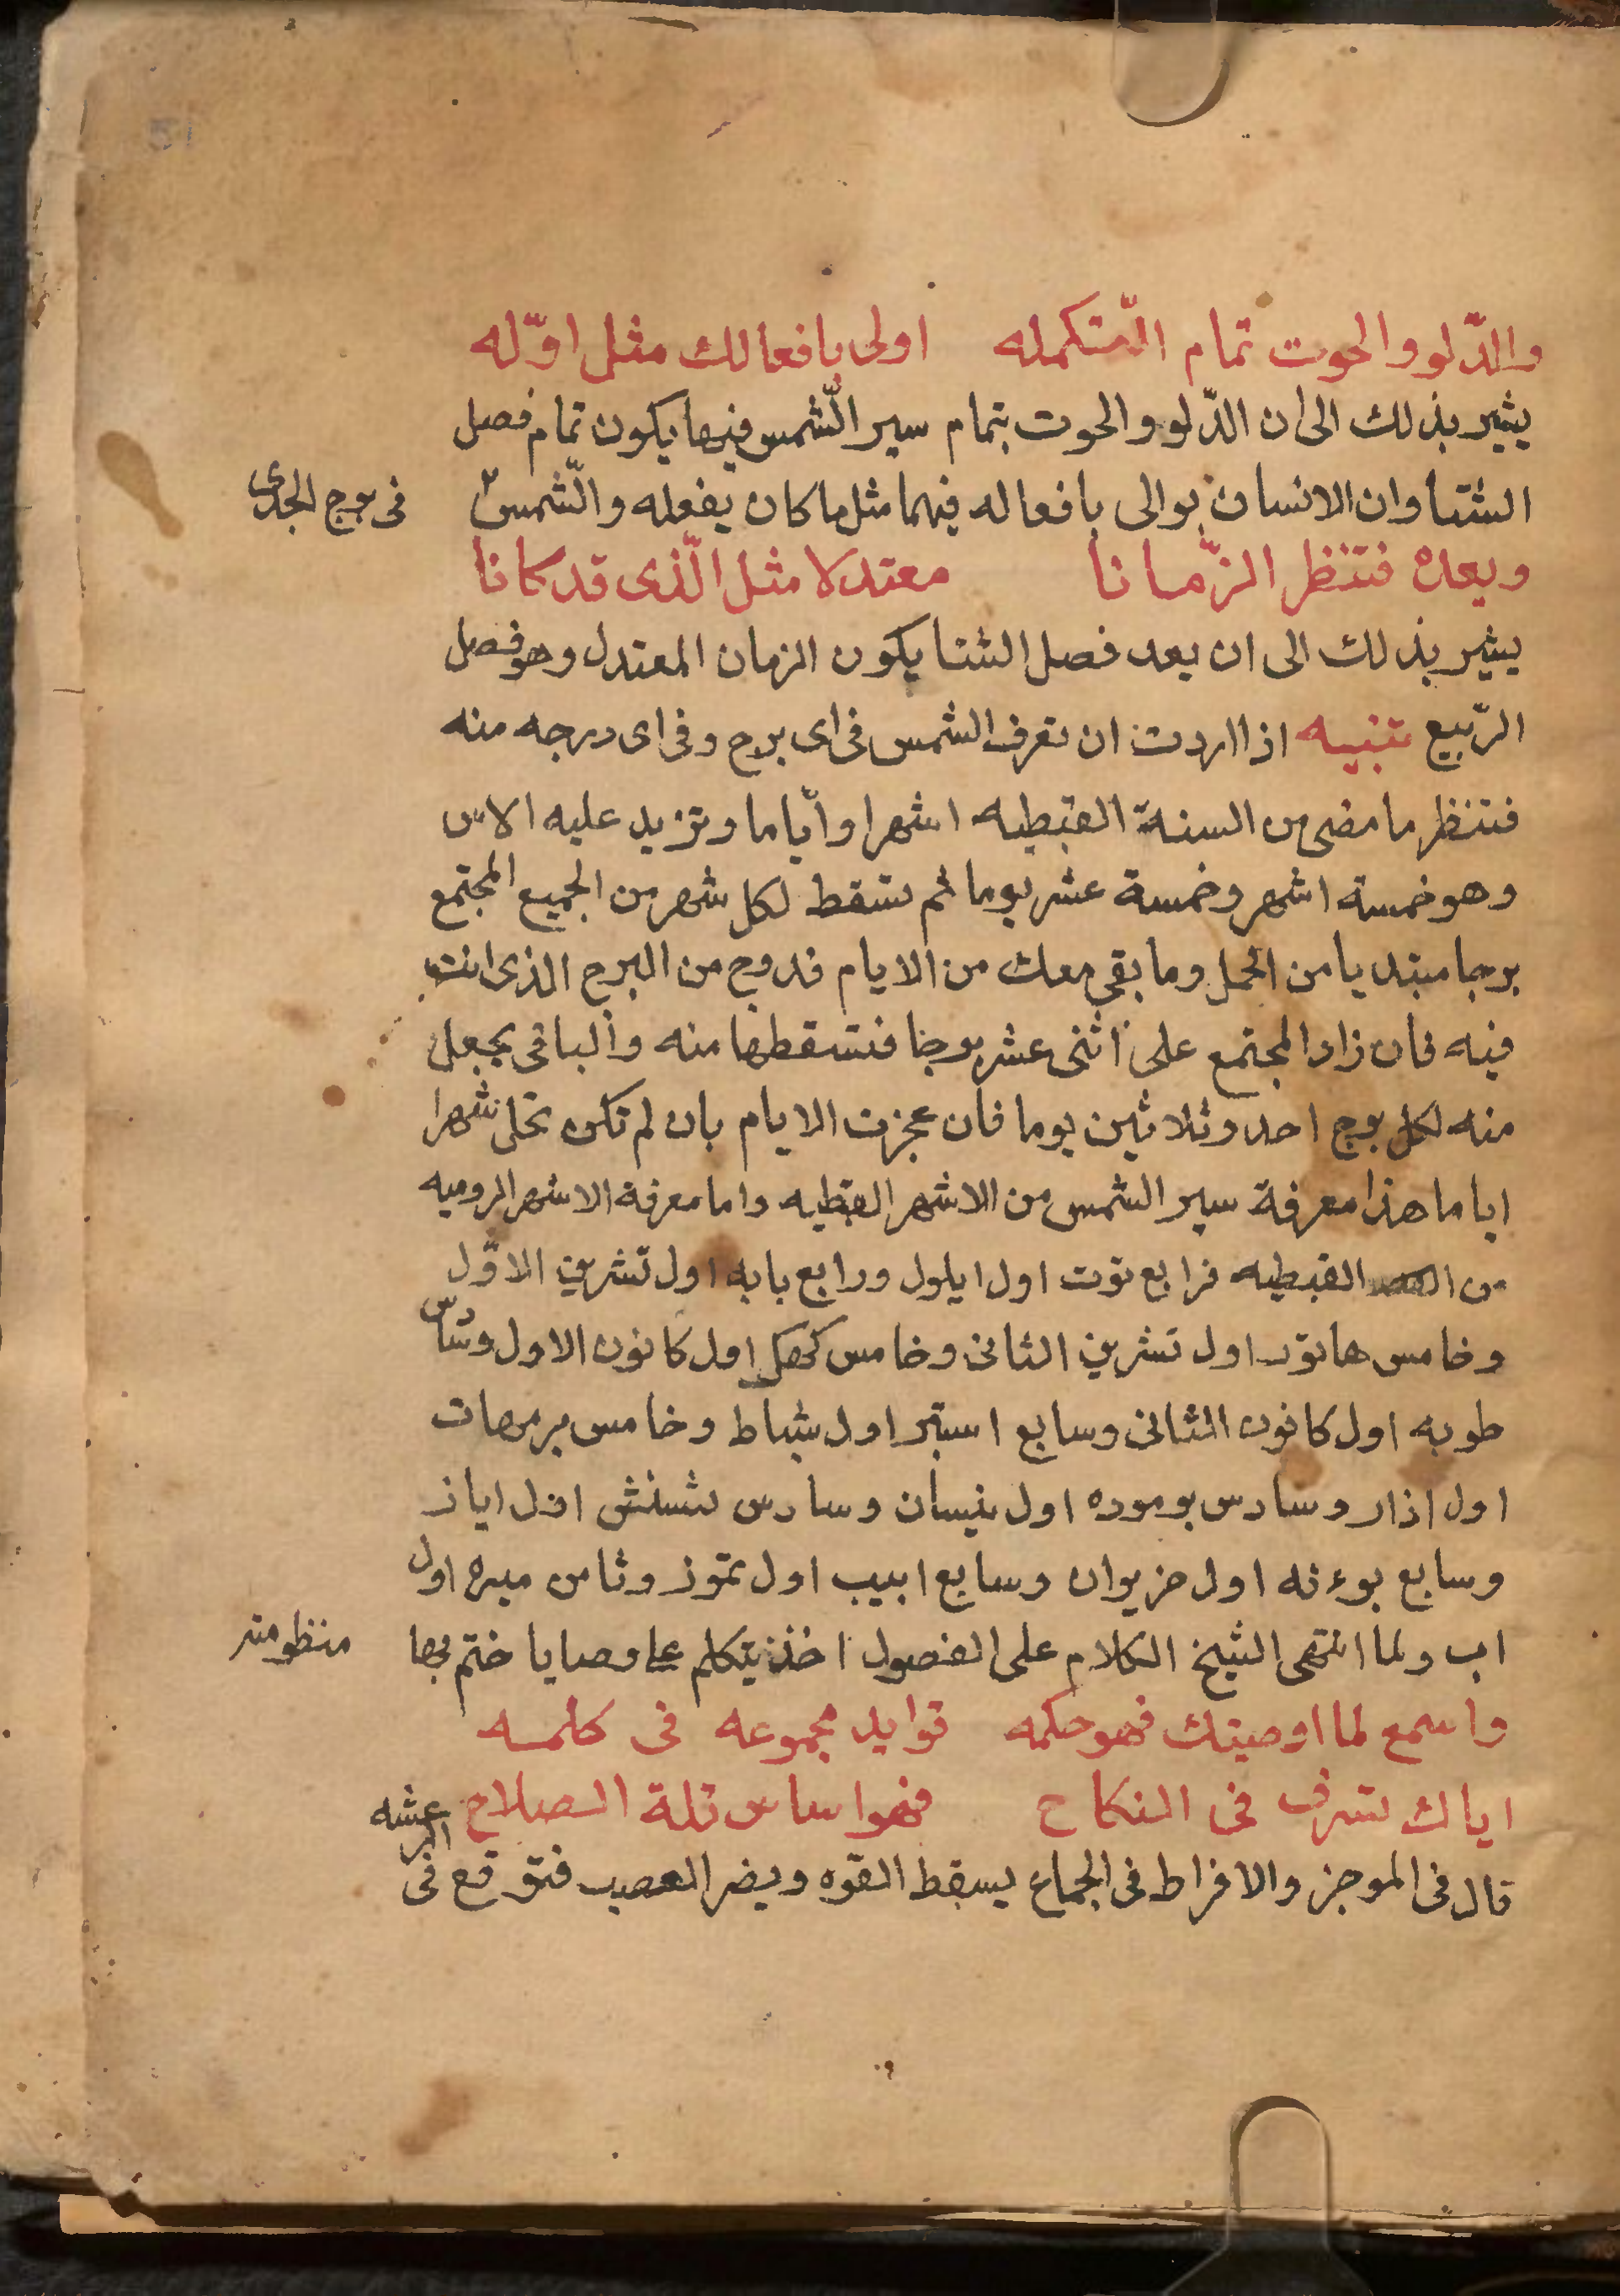 والدّلو والحوت تمام التّكمله اولى بافعالك مثل اوّله
يشير بذلك الى ان الدّلو والحوت بتمام سير الشّمس فيها يكون تمام فصل
الشتا وان الانسان يوالى بافعاله فيهما مثل ما كان يفعله والشّمس فى برج الجدى
وبعده فتنظر الزّمانا معتدلا مثل الّذى قد كانا
يشير بذلك الى ان بعد فصل الشتا يكون الزمان المعتدل وهو فصل
الرّبيع تنبيه اذا اردت ان تعرف الشمس فى اى برج وفى اى درجه منه
فتنظر ما مضى من السنة القبطيه اشهرا وايّاما وتزيد عليه الاس
وهو خمسة اشهر وخمسة عشر يوما ثم تسقط لكل شهر من الجميع المجتمع
برجا مبتديا من الحمل وما بقى معك من الايام فدرج من البرج الذى انت
فيه فان زاد المجتمع على اثنى عشر برجا فتسقطها منه والباقى يجعل
منه لكل برج احد وثلاثين يوما فان عجزت الايام بان لم تكن شهرا
اياما هذا معرفة سير الشمس من الاشهر القبطيه واما معرفة الاشهر الروميه
من القبطيه فرابع توت اول ايلول ورابع بابه اول تشرين الاوّل
وخامس هاتور اول تشرين الثانى وخامس كيهك اول كانون الاول وسادس
طوبه اول كانون الثانى وسابع امشير اول شباط وخامس برمهات
اول اذار وسادس برموده اول نيسان وسادس بشنش اول ايار
وسابع بوءنه اول حزيران وسابع ابيب اول تموز وثامن مسره اول
اب ولما انتهى الشيخ الكلام على الفصول اخذ يتكلم على وصايا ختم بها منظومته
واسمع لما اوصيتك فهو حكمه فوايد مجموعه فى كلمه
اياك تسرف فى النكاح فهو اساس قلة الصلاح
قال فى الموجز والافراط فى الجماع يسقط القوه ويضر العصب فتوقع فى الرعشه